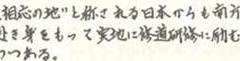 相応の地"と称される日本からも南方
き身をもって実地に修道研修に励む
つつある。